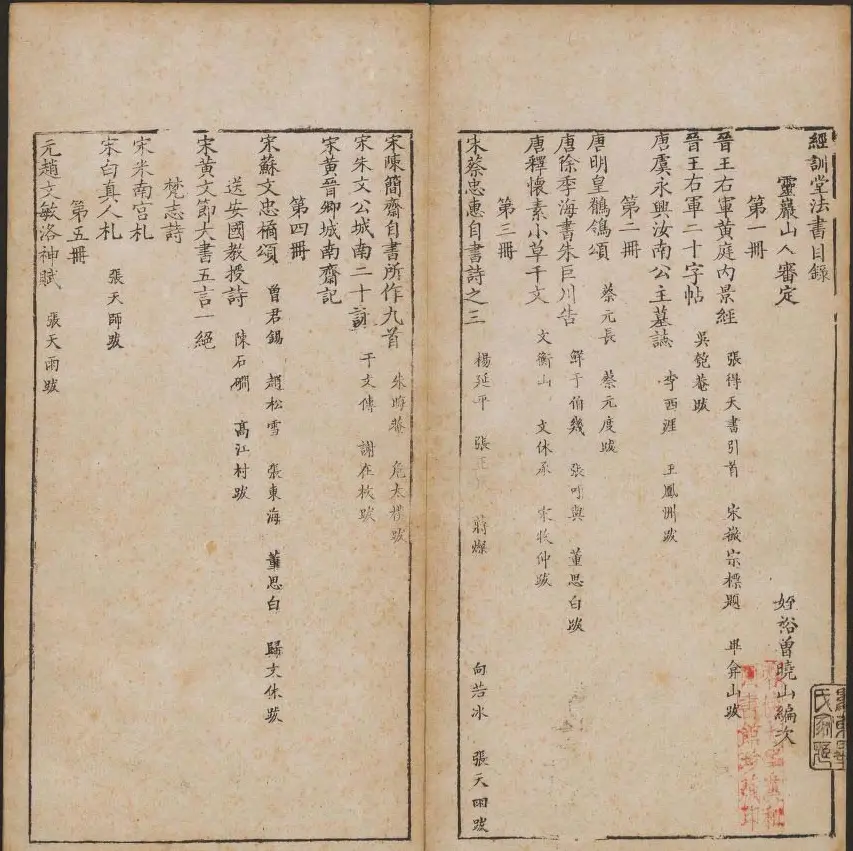 經訓堂法書目錄
靈巖山人審定 姪裕曾曉山編次
第一冊
晉王右軍黃庭內景經 張得天書引首 宋徽宗標題 畢弇山跋
晉王右軍二十字帖 吳匏菴跋
唐虞永興汝南公主墓誌 李西涯 王鳳洲跋
第二冊
唐明皇鶺鴒頌 蔡元長 蔡元度跋
唐徐季海書朱巨川告 鮮于伯幾 張可與 董思白跋
唐釋懷素小草千文 文衡山 文休承 宋牧仲跋
第三冊
宋蔡忠惠自書詩之三 楊延平 張 蔣燦 向若冰 張天雨跋
宋陳簡齋自書所作九首 朱晦菴 危太樸跋
宋朱文公城南二十詠 干文傳 謝在杭跋
宋黃晉卿城南齋記
第四冊
宋蘇文忠橘頌 曾君錫 趙松雪 張東海 董思白 歸文休跋
送安國教授詩 陳石礀 高江村跋
宋黃文節大書五言一絕
梵志詩
宋米南宮札
宋白真人札 張天師跋
第五冊
元趙文敏洛神賦 張天雨跋